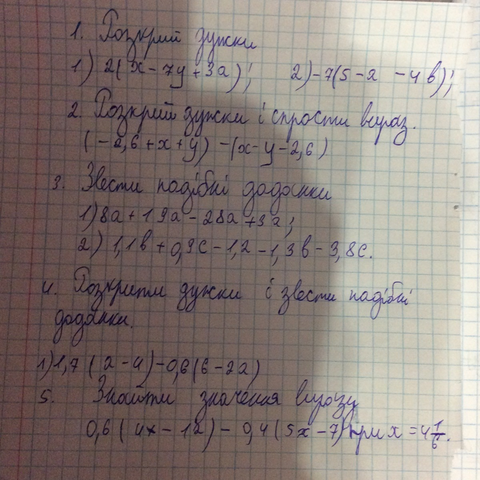 1. Розкрий дужки
1) 2(x-7y+3a); 2) -7(5-a-4b);
2. Розкрий дужки і спрости вираз.
(-2,6+x+y)-(x-y-2,6)
3. Звести подібні доданки
1) 8a+19a-28a+3a;
2) 1,1b+0,9c-1,2-1,3b-3,8c.
4. Розкрити дужки і звести подібні
доданки.
1) 1,7(a-4)-0,6(6-2a)
5. Знайти значення виразу
0,6(4x-12)-0,4(5x-7) при x=4 1/6.